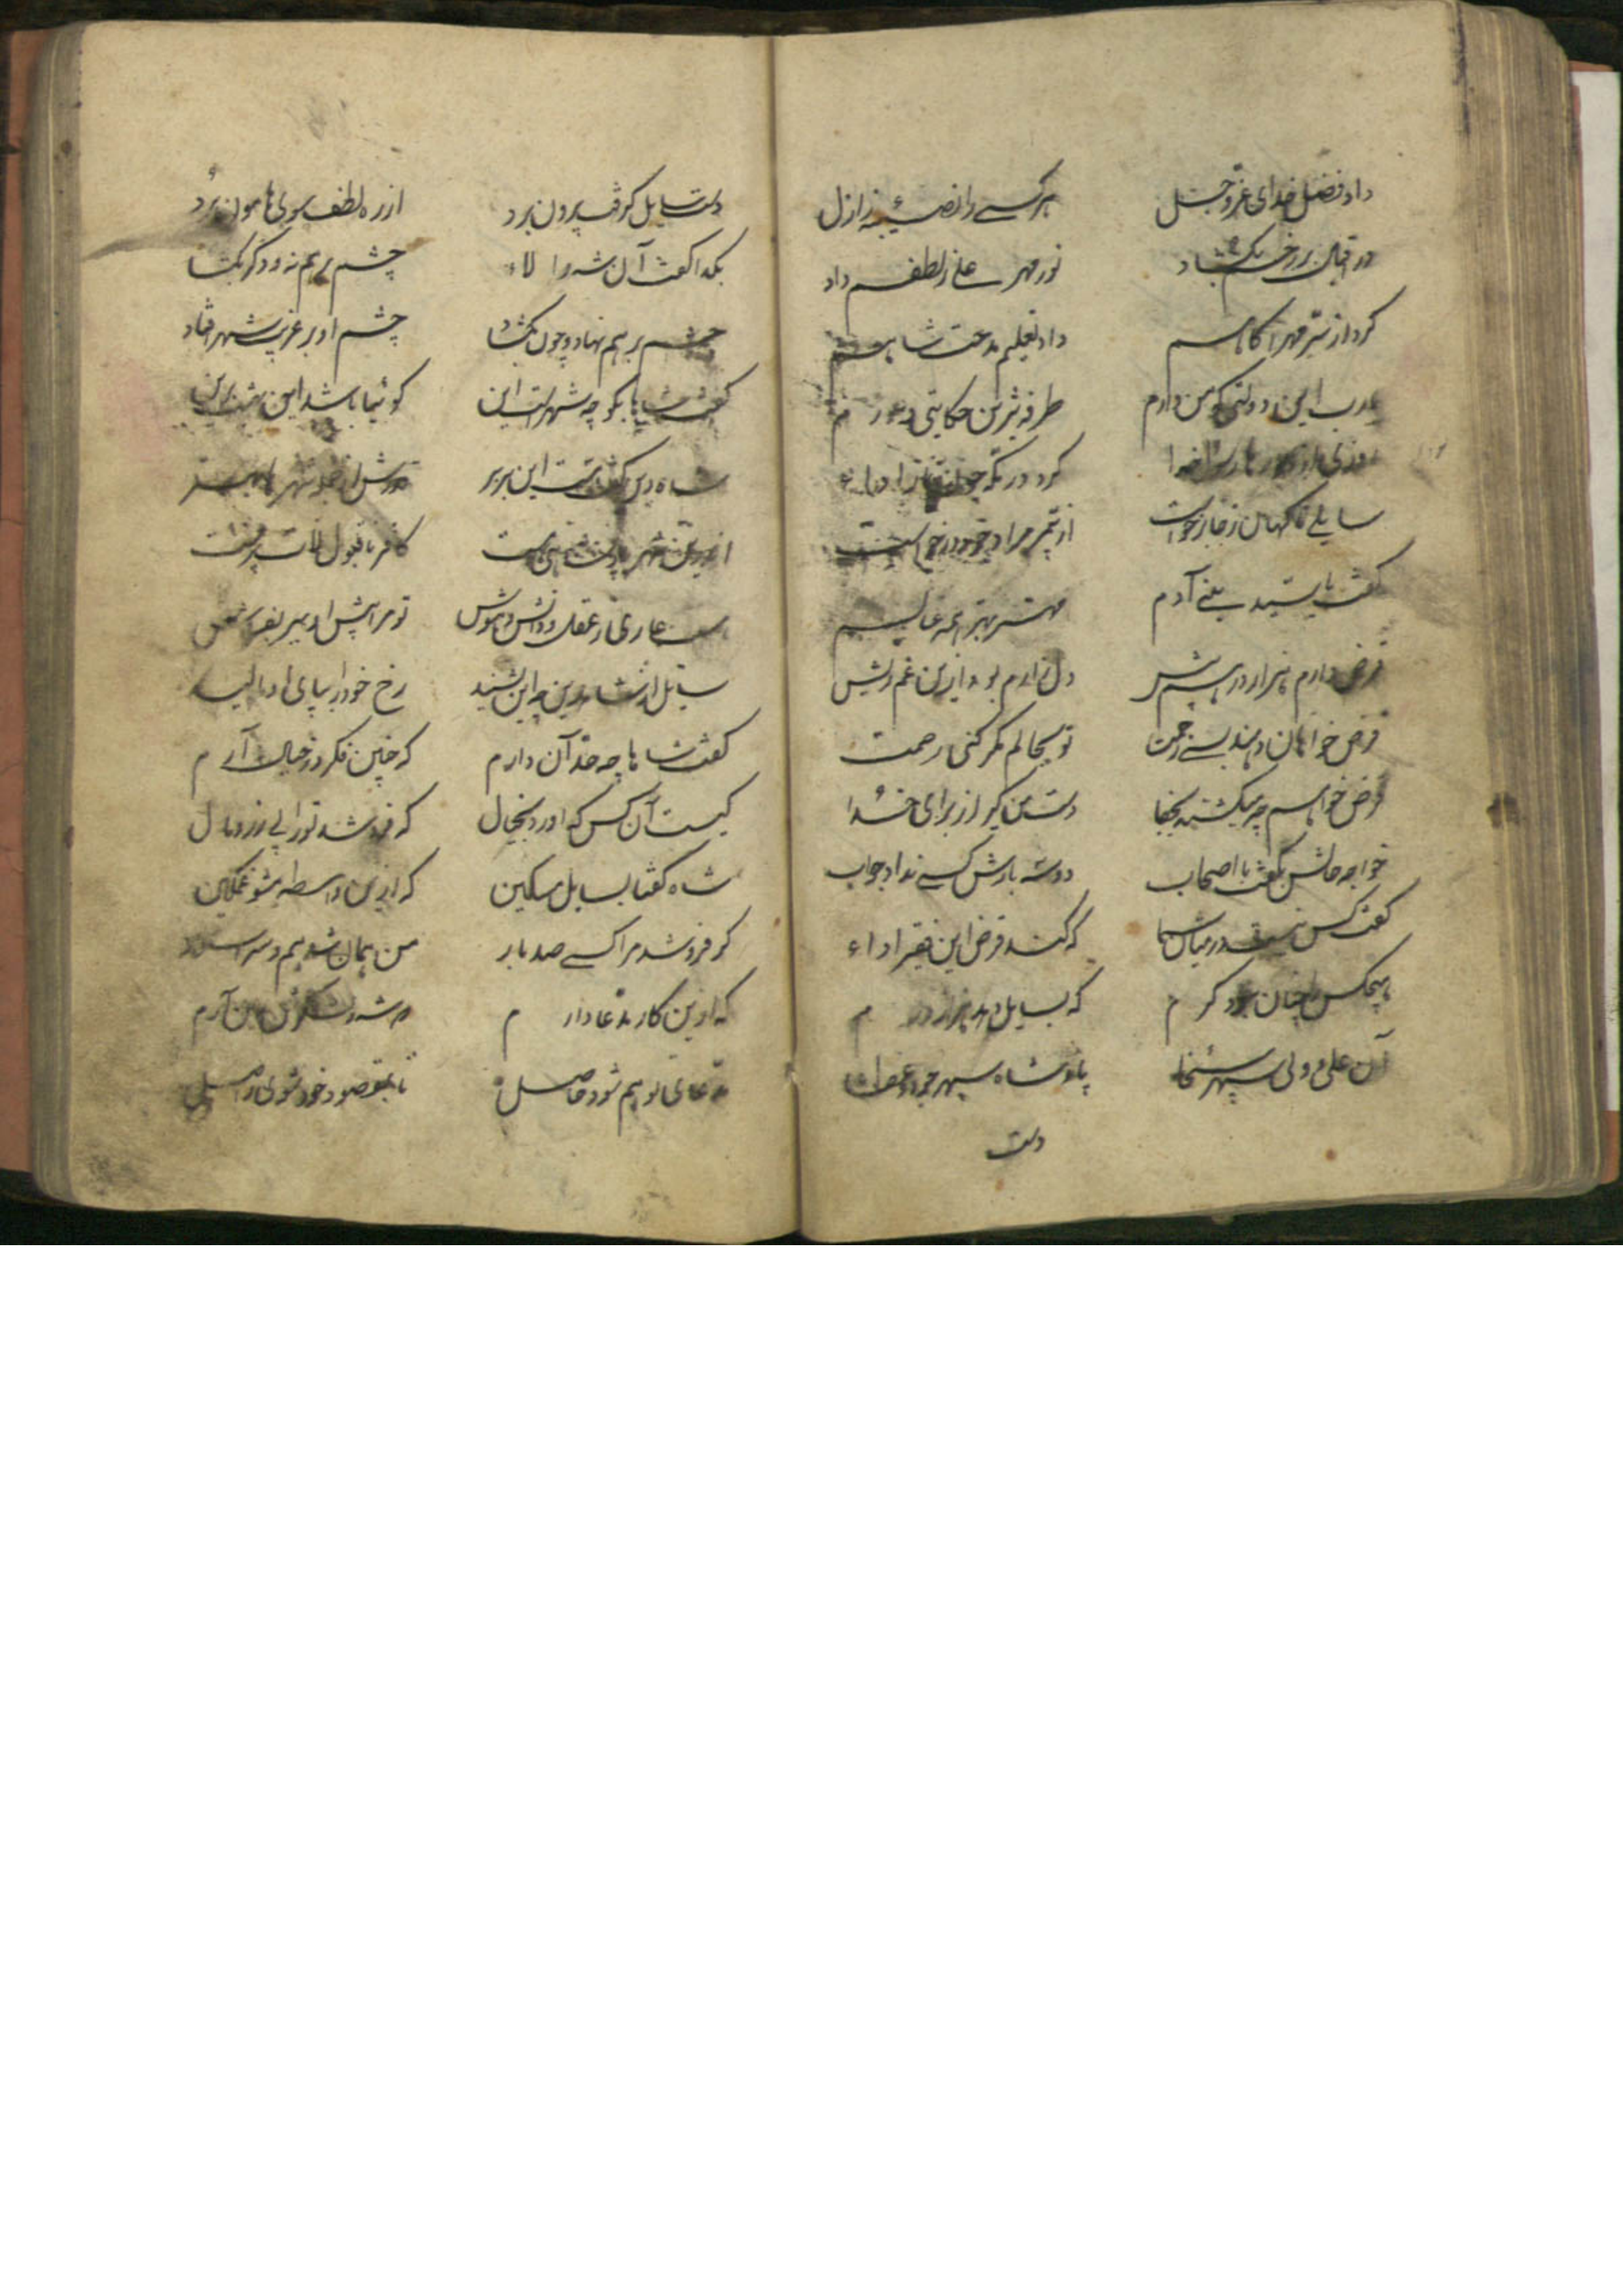 داد فضل خدای عز و جل هر کسی را نصیبه ز ازل
در اقبال بر رخم بگشاد نور مهر علی ز لطفم داد
کرد از سر مهر آگاهم داد تعلیم مدحت شاهم
یارب این دولتی که من دارم طرفه شیرین حکایتی دارم
روزی کرد در مکه
سایلی ناگهان ز جا برخاست از مراد خود در خواست
گفت یا سید بنی آدم مهتر بهتر همه عالم
قرض دارم هزار درهم بیش دل زارم بود ازین غم ریش
قرض خواهان دهند بسی زحمت تو بحالم مگر کنی رحمت
قرض خواهم چو میکشند بجفا دست من گیر از برای خدا
خواجه حالش بگفت با اصحاب در سه بارش کسی نداد جواب
گفت کس نیست در میان شما که کند قرض این فقیر اداء
هیچکس را چنان نبود کرم که بسایل دهد هزار درم
آن علی ولی سپهر سخا پادشاه سپهر جود و عطا
دست
دست سایل گرفت بیرون برد از ره لطف سوی هامون برد
بگدا گفت آن شه والاء چشم بر هم نه و دگر بگشا
چشم بر هم نهاد و چون بگشاد چشم او بر غریب شهر افتاد
گفت شاها بگو چه شهرست این گوئیا باشد این بهشت برین
شاه دین گفت هست این بربر
اندرین شهر پادشاهی هست کافر ناقبول لات پرست
هست عاری ز عقل و دانش و هوش تو مرا پیش او ببر بفروش
سایل از شاه دین چو این بشنید رخ خود را بپای او مالید
گفت شاها چه حد آن دارم که چنین فکر در خیال آرم
کیست آن کس که آورد بخیال که فروشد تو را پی زر و مال
شاه گفتا بسایل مسکین که ازین واسطه مشو غمگین
گر فروشد مرا کسی صد بار من همان شاهم و سر
که ازین کار مدعا دارم
مدعای تو هم شود حاصل تا بمقصود خود شوی واصل